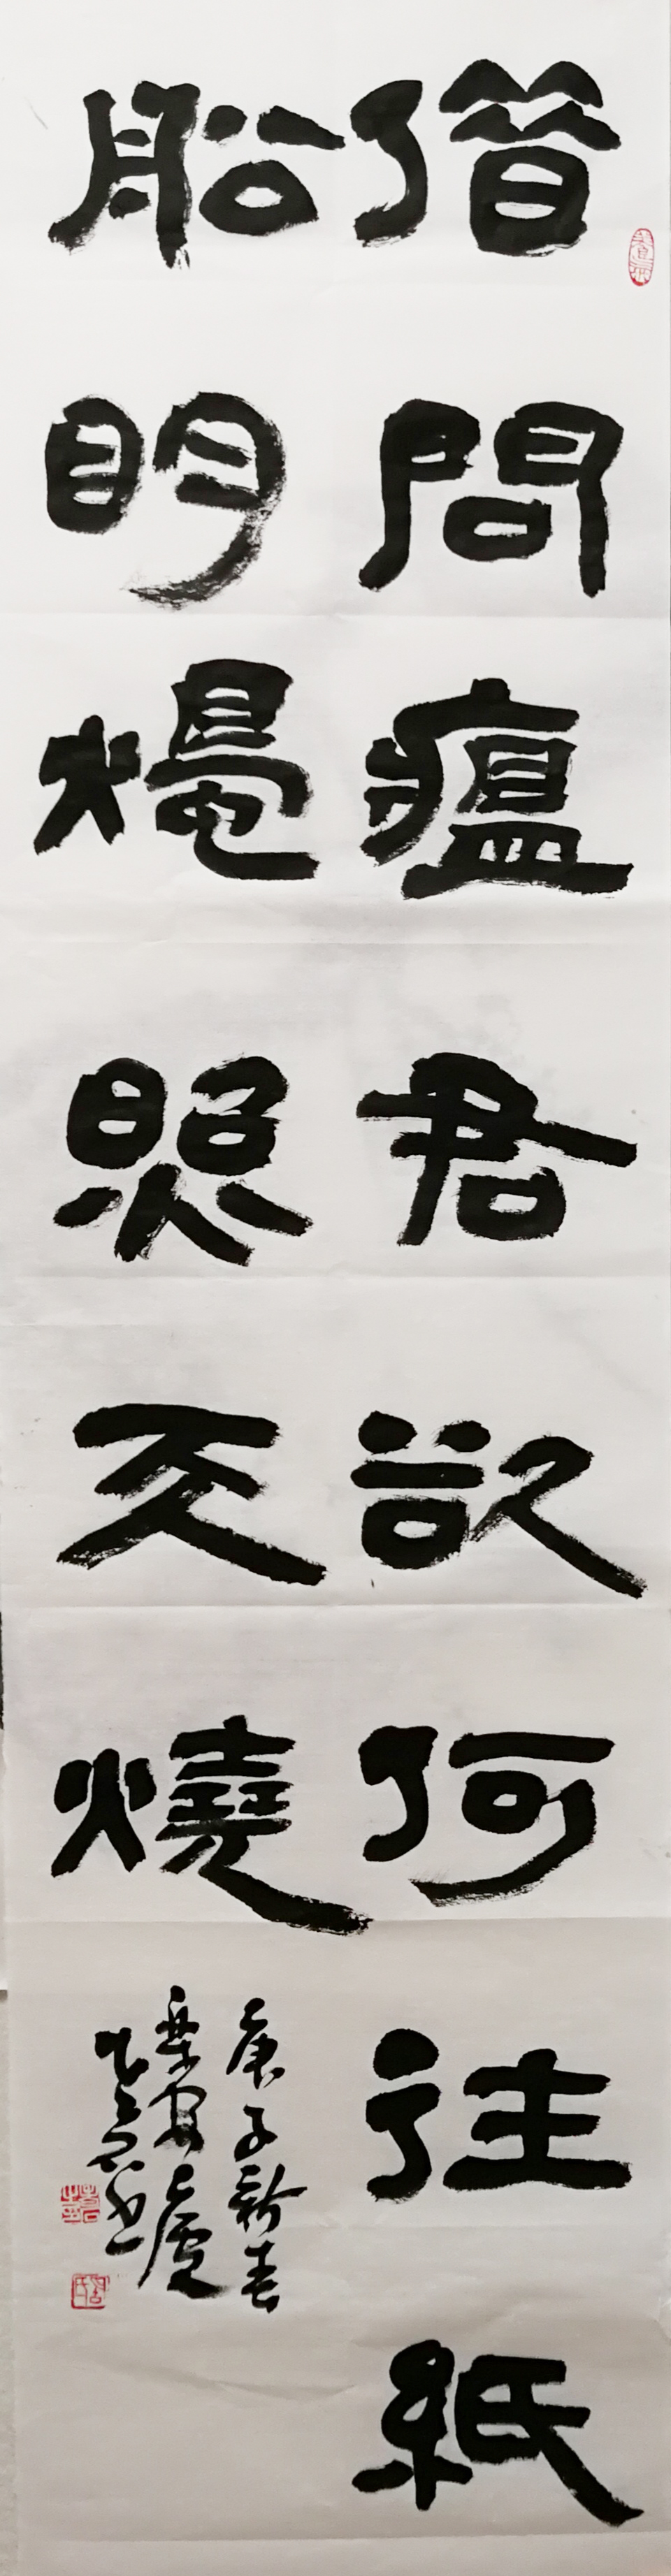 借問瘟君欲何往紙
船明燭照天燒
庚子新春